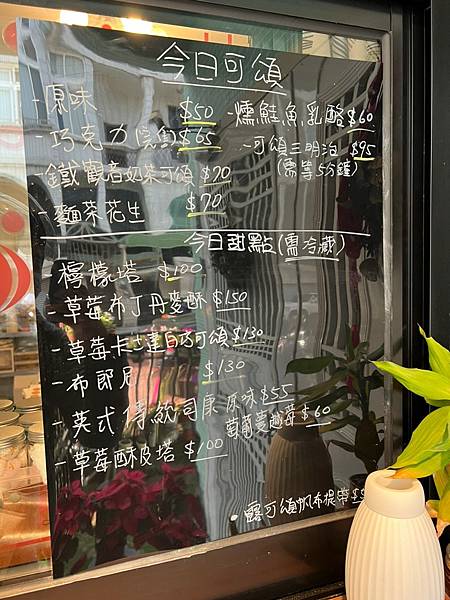 今日可頌
-原味 $50
-巧克力 $65
-鐵觀音奶茶可頌 $70
-麵茶花生 $70
-燻鮭魚乳酪 $60
-可頌三明治 $95
(需等5分鐘)
今日甜點(需冷藏)
-檸檬塔 $100
-草莓布丁丹麥酥 $150
-草莓卡士達白巧可頌 $130
-布郎尼 $130
-英式傳統司康 原味 $55
葡萄蔓越莓 $60
-草莓酥皮塔 $100
可頌帆布提帶